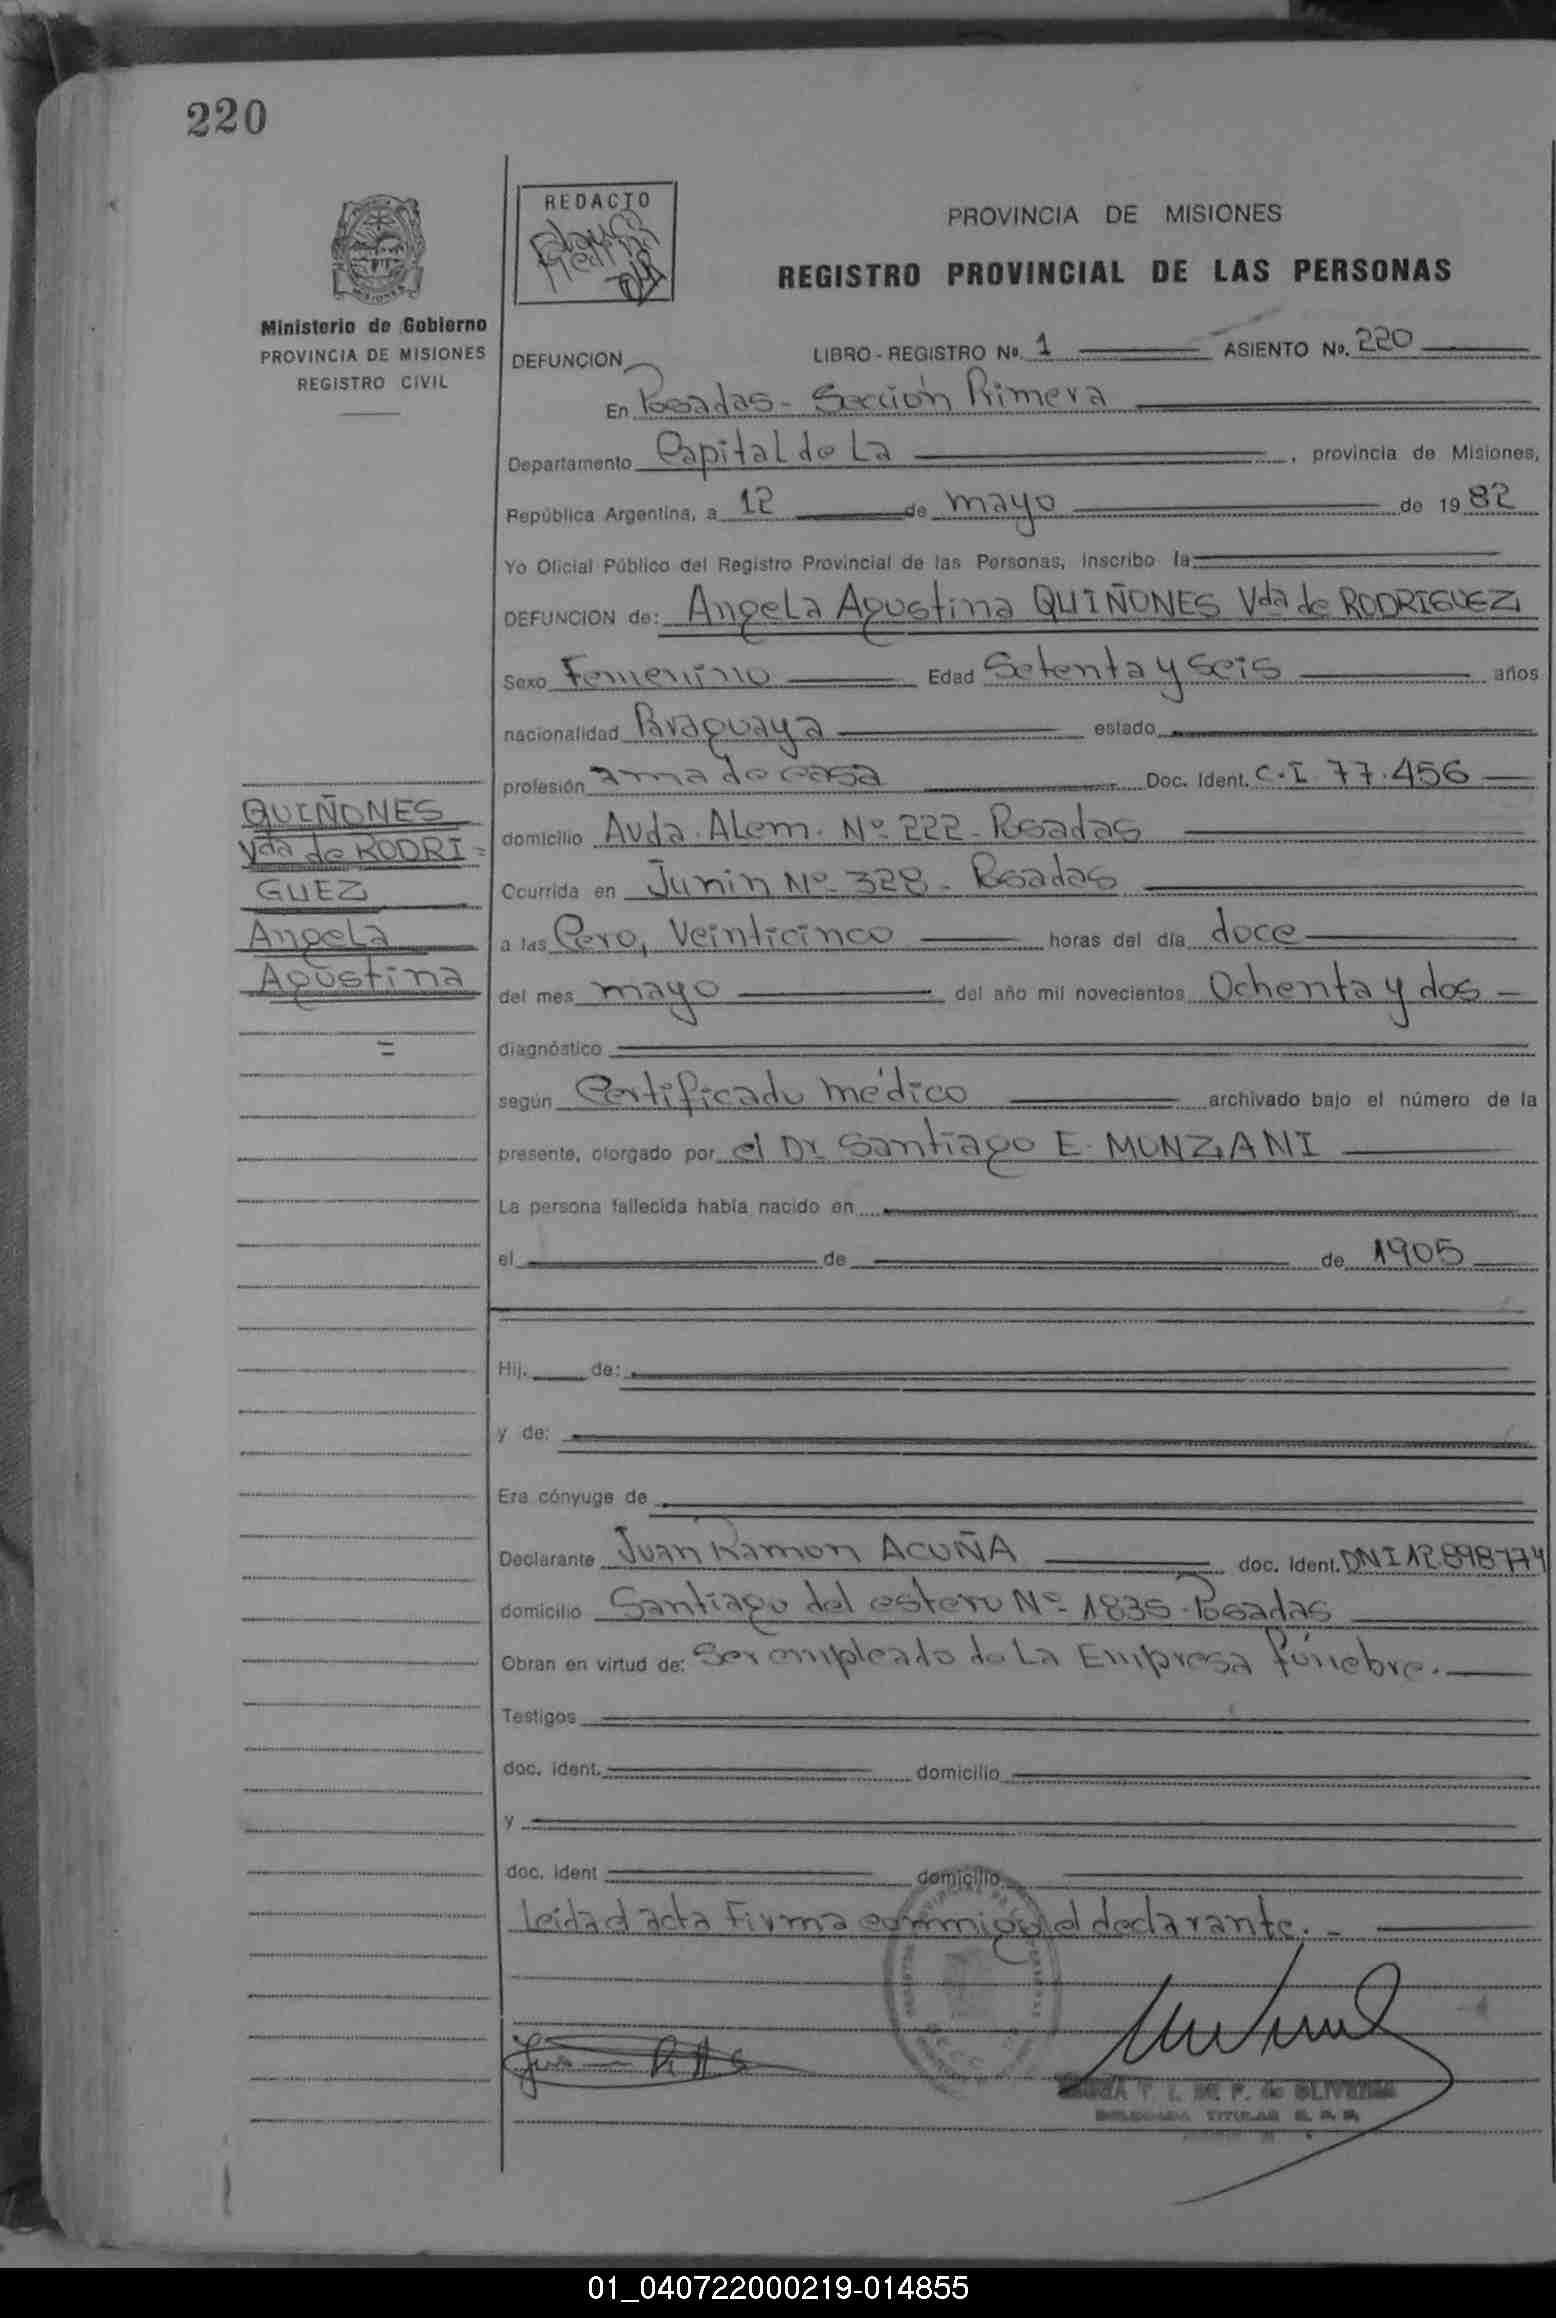 220
MISIONES
Ministerio de Gobierno
PROVINCIA DE MISIONES
REGISTRO CIVIL
REDACTO
PROVINCIA DE MISIONES
REGISTRO PROVINCIAL DE LAS PERSONAS
DEFUNCION LIBRO - REGISTRO No. 1 ASIENTO No. 220
En Posadas - Sección Primera
Departamento Capital de La, provincia de Misiones,
República Argentina, a 12 de mayo de 1982
Yo Oficial Público del Registro Provincial de las Personas, inscribo la
DEFUNCION de: Angela Agustina QUIÑONES Vda de RODRIGUEZ
Sexo Femenino Edad Setenta y Seis años
nacionalidad Paraguaya estado
profesión ama de casa Doc. Ident. C.I. 77.456
domicilio Avda. Alem. Nº 222 - Posadas
Ocurrida en Junin Nº 328 - Posadas
a las Cero, Veinticinco horas del día doce
del mes mayo del año mil novecientos Ochenta y dos -
diagnóstico
según Certificado médico archivado bajo el número de la
presente, otorgado por el Dr Santiago E. MONZANI
La persona fallecida había nacido en
el de de 1905
Hij. de:
y de:
Era cónyuge de
Declarante Juan Ramon ACUÑA doc. Ident. DNI 12.898.774
domicilio Santiago del estero Nº 1835 - Posadas
Obran en virtud de: Ser empleado de La Empresa fúnebre.
Testigos
doc. ident. domicilio
y
doc. ident domicilio
Leída el acta Firma conmigo el declarante. -
QUIÑONES
Vda de RODRI=
GUEZ
Angela
Agustina
=
DE P. de OLIVEIRA
TITULAR
01_040722000219-014855